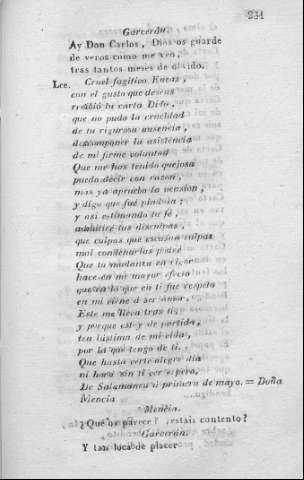 231
Garcerán.
Ay Don Carlos, Dios os guarde
de veros como me veo,
tras tantos meses de olvido.
Lee. Cruel fugitivo Eneas,
con el gusto que deseas
recibió tu carta Dido,
que no pudo la crueldad
de tu rigurosa ausencia,
descomponer la asistencia
de mi firme voluntad
Que me has tenido quejosa
puedo decir con razon,
mas ya apruebo la
y digo que fué
y asi estimando tu fé,
admitiré tus disculpas,
que culpas que escusan culpas
mal condenarlas podré
Que tu mudanza en rigor
hace en mi mayor efecto
que en lo que en ti fue respeto
en mi viene á ser amor.
Este me lleva tras ti,
y porque estoy de partida,
ten lástima de mi vida,
por la que tengo de ti.
Que hasta verte alegre dia
ni hora sin ti espero,
De Salamanca á primero de mayo. = Doña
Mencia
Mencia.
¿Que os parece? ¿estais contento?
Garcerán.
Y tan de placer